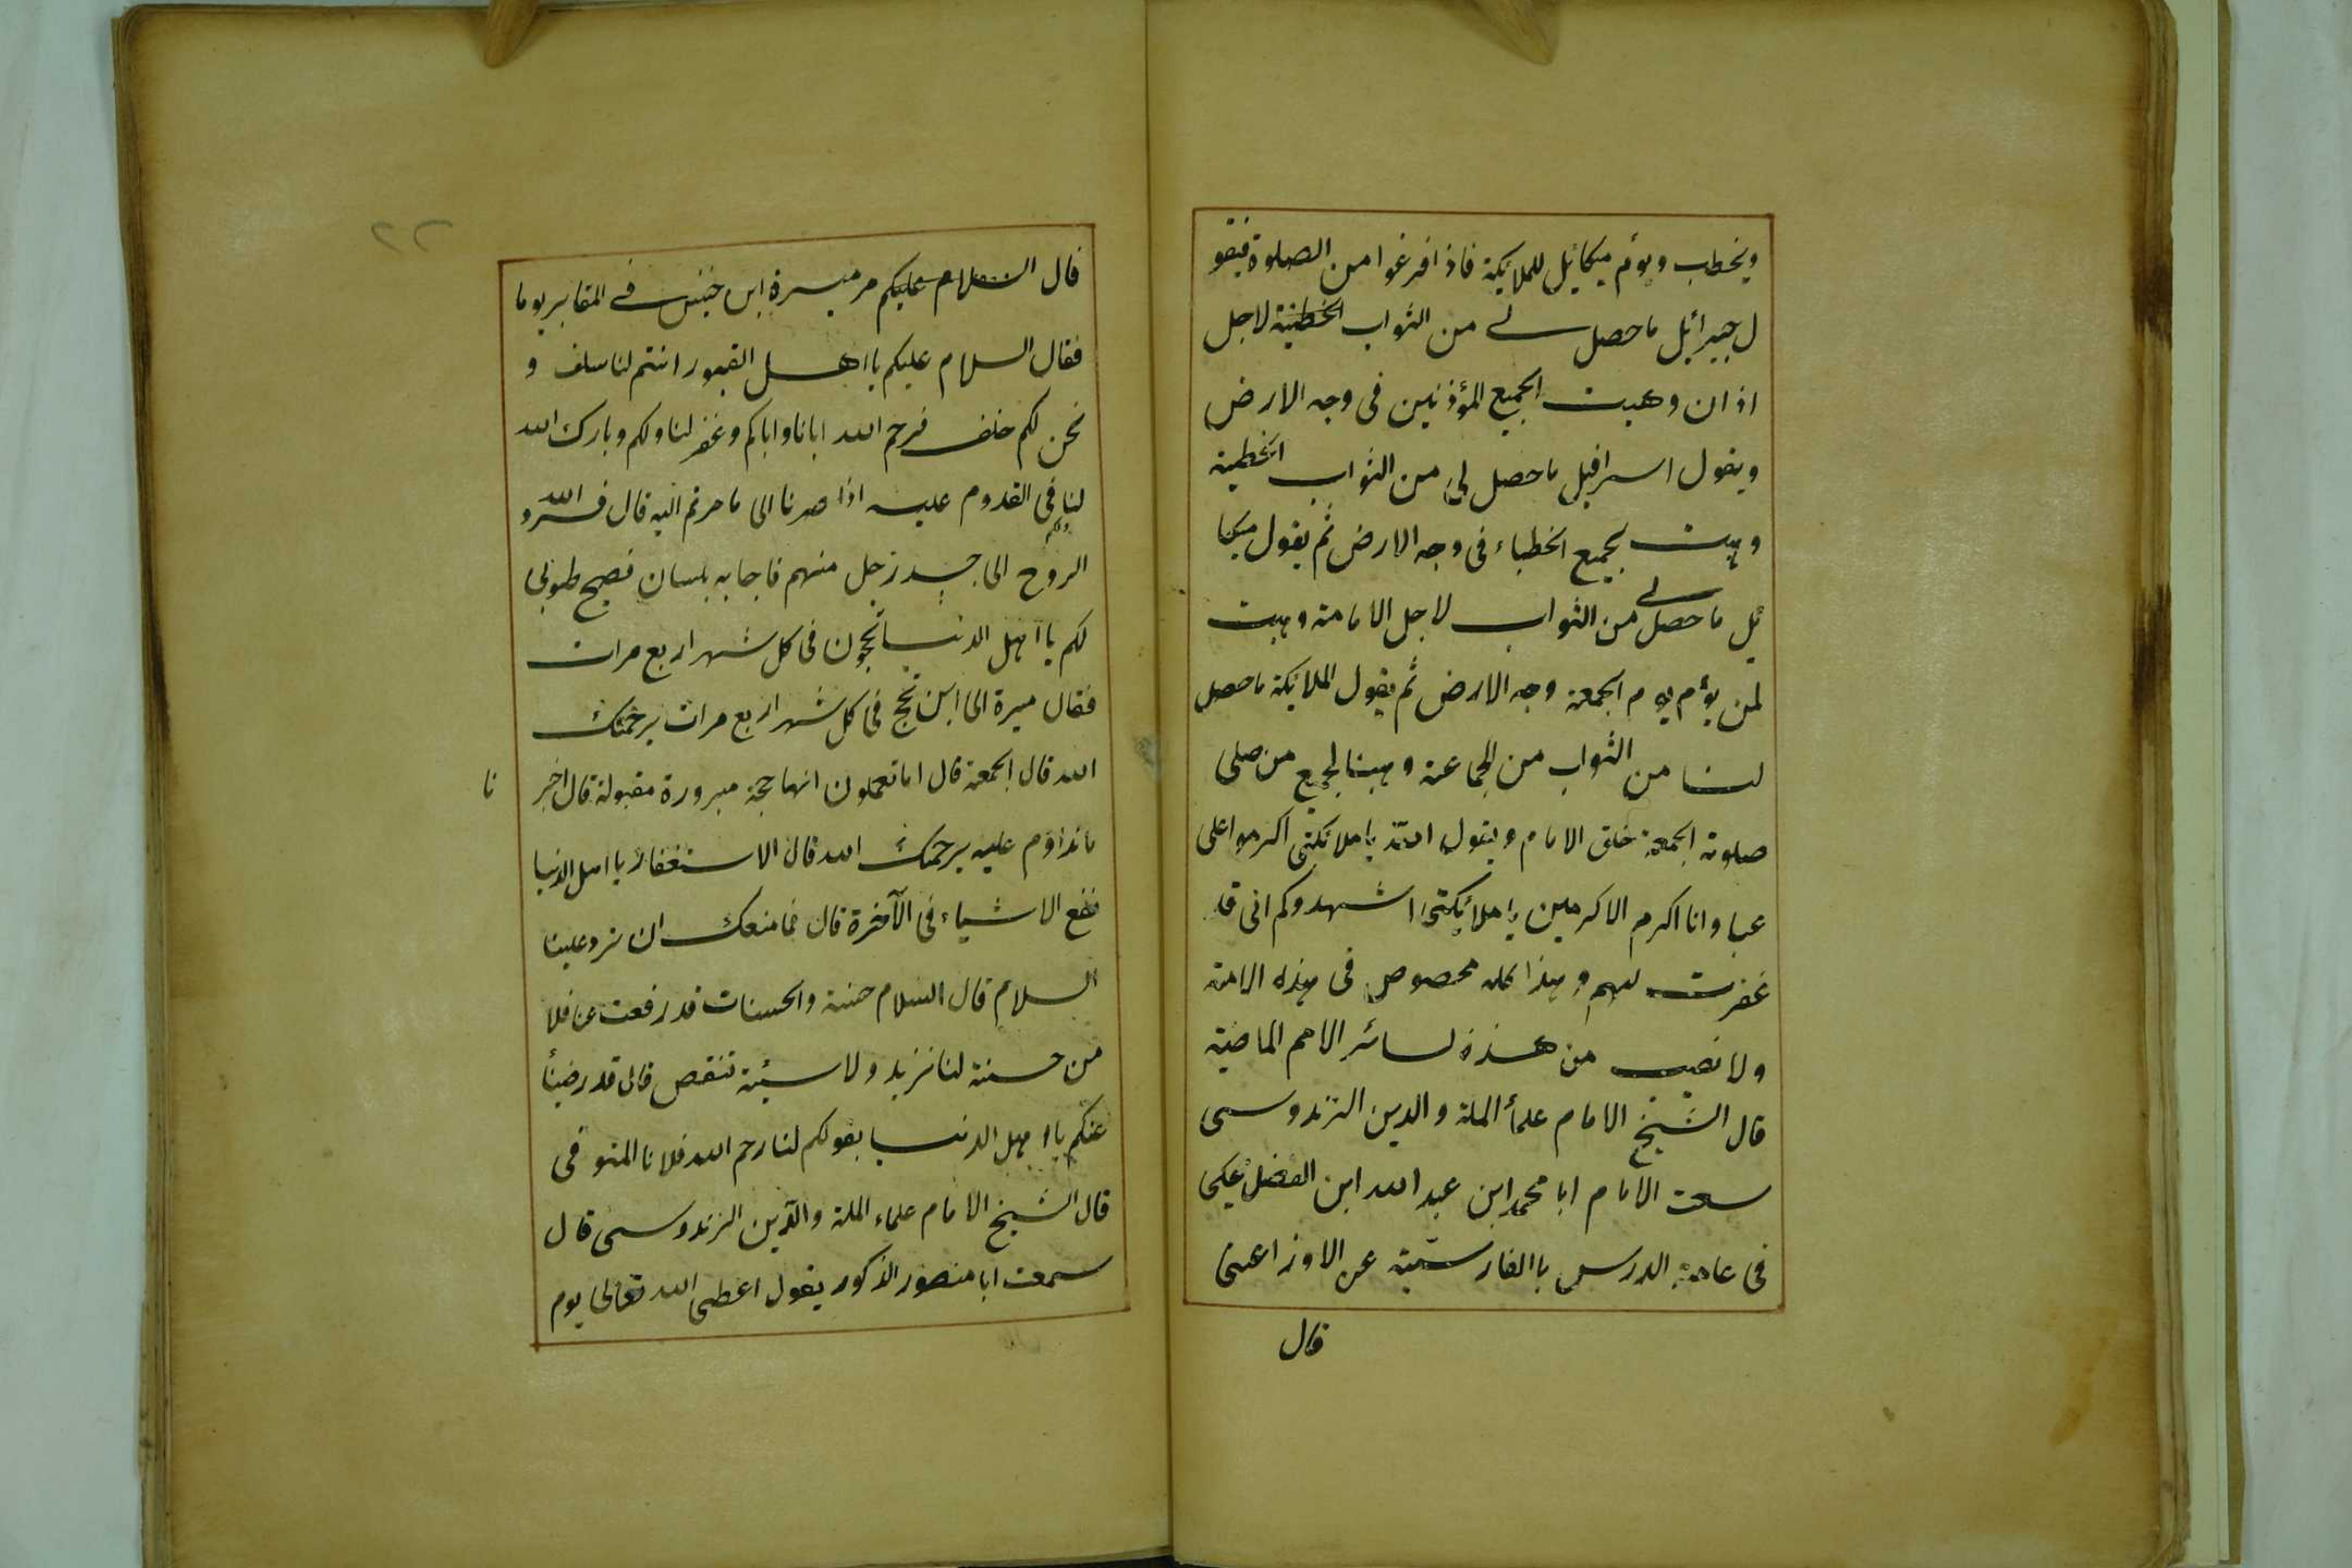 ويخطب ويؤم ميكائيل للملايكة فاذا فرغوا من الصلوة فيقو
ل جبرائيل ما حصل لے من الثواب الخطبة لاجل
اذان وهبت الجميع المؤذنين فى وجه الارض
ويقول اسرافيل ما حصل لى من الثواب الخطبة
وهبت لجميع الخطباء فى وجه الارض ثم يقول ميكا
ئيل ما حصل لے من الثواب لاجل الامامة وهبت
لمن يؤم يوم الجمعة وجه الارض ثم يقول الملائكة ما حصل
لنا من الثواب من الجماعة وهبنا لجميع من صلى
صلوة الجمعة خلق الامام ويقول الله ياملائكتى اكرموا على
عبا وانا اكرم الاكرمين ياملائكتى اشهدوكم انى قد
غفرت لهم وهذا كله مخصوص فى هذه الامة
ولا نصيب من هذه لسائر الامم الماضية
قال الشيخ الامام علمأ الملة والدين الزندوسى
سمعت الامام ابا محمد ابن عبد الله ابن الفضل يحكى
فى عامة الدرس باالفارسية عن الاوزاعى
قال
٢٢
قال السلام عليكم مر ميسرة ابن خنيس فے المقابر يوما
فقال السلام عليكم يا اهل القبور انتم لنا سلف و
نحن لكم خلف فرحم الله ابانا واباكم وغفر لنا ولكم وبارك الله
لنا ولكم فى القدوم عليه اذا صرنا الى ما صرتم اليه قال فرد الله
الروح الى جسد رجل منهم فاجابه بلسان فصيح طوبى
لكم يا اهل الدنيا تحجون فى كل شهر اربع مرات
فقال ميسرة الى اين نحج فى كل شهر اربع مرات يرحمك
الله قال الجمعة قال اما تعملون انها حجة مبرورة مقبولة قال اخبر نا
ما نداوم عليه يرحمك الله قال الاستغفار يا اهل الدنيا
نفع الاشياء فى الآخرة قال فما منعك ان نرد علينا
السلام قال السلام حسنة والحسنات قد رفعت عنا فلا
من حسنة لنا نزيد ولا سيئة تنقص قال قد رضينا
عنكم يا اهل الدنيا بقولكم لنا رحم الله فلانا المتوفى
قال الشيخ الامام علماء الملة والدين الزندوسى قال
سمعت ابا منصور الذكور يقول اعطى الله تعالى يوم